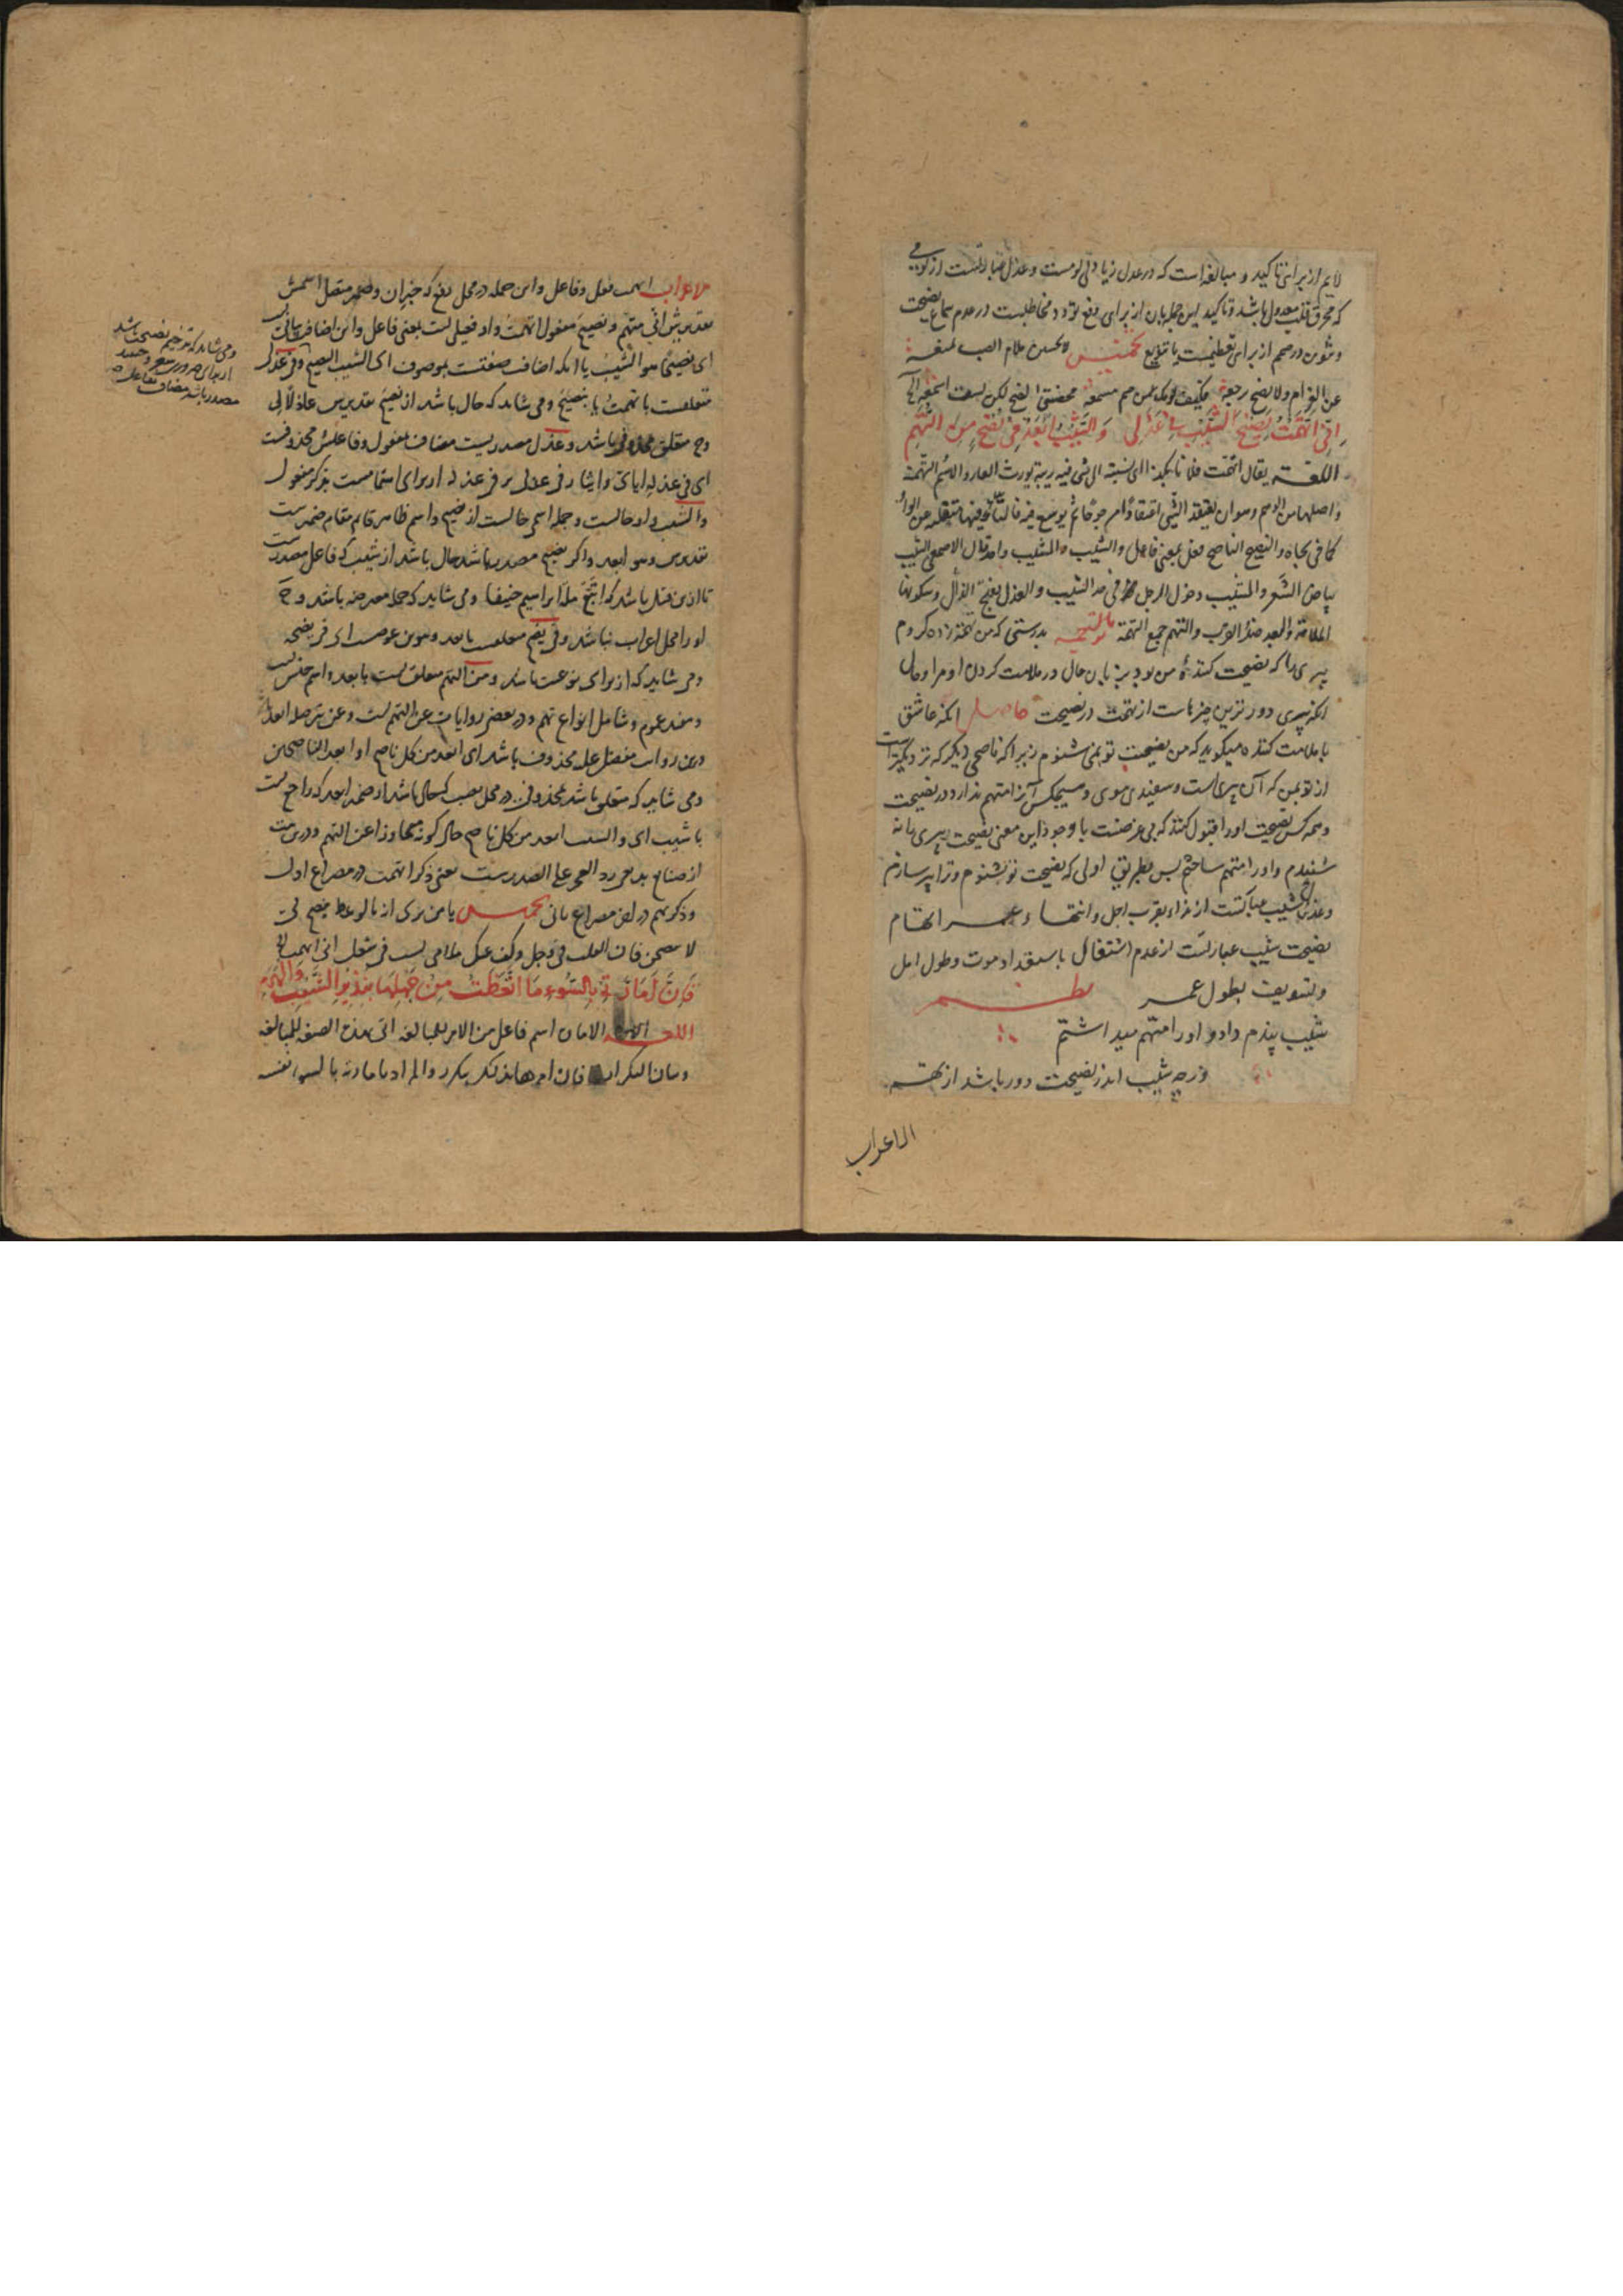 لایم از برای تاکید و مبالغه است که در عذل زیادتی لومست و عذل عبارتست از لومی
که محرق قلب معذول باشد و تاکید این جمله بان از برای دفع تردد مخاطبست در عدم سماع نصیحت
و تنوین در صمم از برای تعظیمست یا تنویع تخمیس لا تحسبن ملام الصب لمنعه
عن الغرام ولا نصح رجعه فکیف لومک من صم مسمعه محضتنی النصح لکن لست اسمعه الخ
اِنّی اتَّهَمْتُ نَصِیْحَ الشَّیْبِ فِی عَذَلِی وَالشَّیْبُ اَبْعَدُ فِی نُصْحٍ مِنَ التُّهَمِ
اللغة یقال اتهمت فلانا بکذا ای نسبته الی شیء فیه ریبة یورث العار والاسم التهمة
و اصلها من الوهم وهو ان یعتقد الشیء اعتقادا مرجوحا لم یوضع فیه فالتاء فیها منقلبة عن الواو
کما فی تجاه والنصیح الناصح فعیل بمعنی فاعل والشیب والمشیب واحد قال الاصمعی الشیب
بیاض الشعر والمشیب دخول الرجل فی حد الشیب والعذل بفتح الذال وسکونها
الملامة والبعد ضد القرب والتهم جمع التهمة الترجمه بدرستی که من تهمت زده کردم
پیری را که نصیحت کننده من بود بزبان حال در ملامت کردن او مرا و حال
انکه پیری دورترین چیزهاست از تهمت در نصیحت حاصل انکه عاشق
با ملامت کننده میکوید که من نصیحت تو نمی شنوم زیرا که ناصحی دیکر که نزدیکترست
از تو بمن که آن پیریست و سفیدی موی و هیچکس آنرا متهم ندارد در نصیحت
و همه کس نصیحت او را قبول کنند که بی غرضست با وجود این معنی نصیحت پیری را نه
شنیدم و او را متهم ساختم پس بطریق اولی که نصیحت تو نشنوم و ترا پر سازم
و عذل شیب عبارتست از نداء بقرب اجل و انتهاء عمر و اتهام
نصیحت شیب عبارتست از عدم اشتغال باستعداد موت و طول امل
و تسویف بطول عمر نظم
شیب پندم داد و او را متهم میداشتم
ورچه شیب اندر نصیحت دور باشد از تهم
الاعراب
الاعراب اتهمت فعل و فاعل و این جمله در محل رفع که خبر ان و ضمیر متصل اسمش
تقدیرش انی متهم و نصیح مفعول اتهمت و او فعیلی است بمعنی فاعل و این اضافت بیانیست
ای نصیحا هو الشیب یا انکه اضافت صفتست بموصوف ای الشیب النصیح و فی عذلی
متعلقست باتهمت یا بنصیح و می شاید که حال باشد از نصیح تقدیرش عاذلا لی
وح متعلق محذوف باشد و عذل مصدریست مضاف بمفعول و فاعلش محذوفست
ای فی عذله ایای و ایثار فی عذلی بر فی عذله از برای اهتمامست بذکر مفعول
والشیب واو حالیست و جمله اسمی حالیست از نصیح و اسم ظاهر قایم مقام ضمیرست
تقدیرش وهو ابعد و اکر نصیح مصدر باشد حال باشد از شیب که فاعل مصدرست
تا ازین قبیل باشد که اتبع ملة ابراهیم حنیفا و می شاید که جمله معترضه باشد وح
او را محل اعراب نباشد و فی نصح متعلقست بابعد و تنوین عوضست ای فی نصحه
و می شاید که از برای نوعیت باشد و من التهم متعلق است بابعد و اسم جنس است
و مفید عموم و شامل انواع تهم و در بعضی روایات عن التهم است و عن صله ابعد
و عن روایت مفضل علیه محذوف باشد ای ابعد من کل ناصح او ابعد الناصحین
و می شاید که متعلق باشد بمحذوفی در محل نصب که حال باشد از ضمیر ابعد که راجع است
با شیب ای والشیب ابعد من کل ناصح حال کونه متجاوزا عن التهم و درین بیت
از صنایع بدیعی رد العجز علی الصدرست یعنی ذکر اتهمت در مصراع اول
و ذکر تهم در مصراع ثانی تخمیس یا من
لا تنصحن فان القلب فی وجل وکف عنک ملامی لست فی شغل انی اتهمت الخ
فَاِنَّ اَمَّارَتِی بِالسُّوءِ مَا اتَّعَظَتْ مِنْ جَهْلِهَا بِنَذِیْرِ الشَّیْبِ وَالْهَرَمِ
اللغة الامارة اسم فاعل من الامر للمبالغة اتی بهذه الصیغة للمبالغة
وبیان التکرار فان امرها بذلک یتکرر والمراد بامارتی بالسوء نفسه
و می شاید که ترخیم نصیحت باشد
از برای ضرورت شعر و حینئذ
مصدر باشد مضاف بفاعل